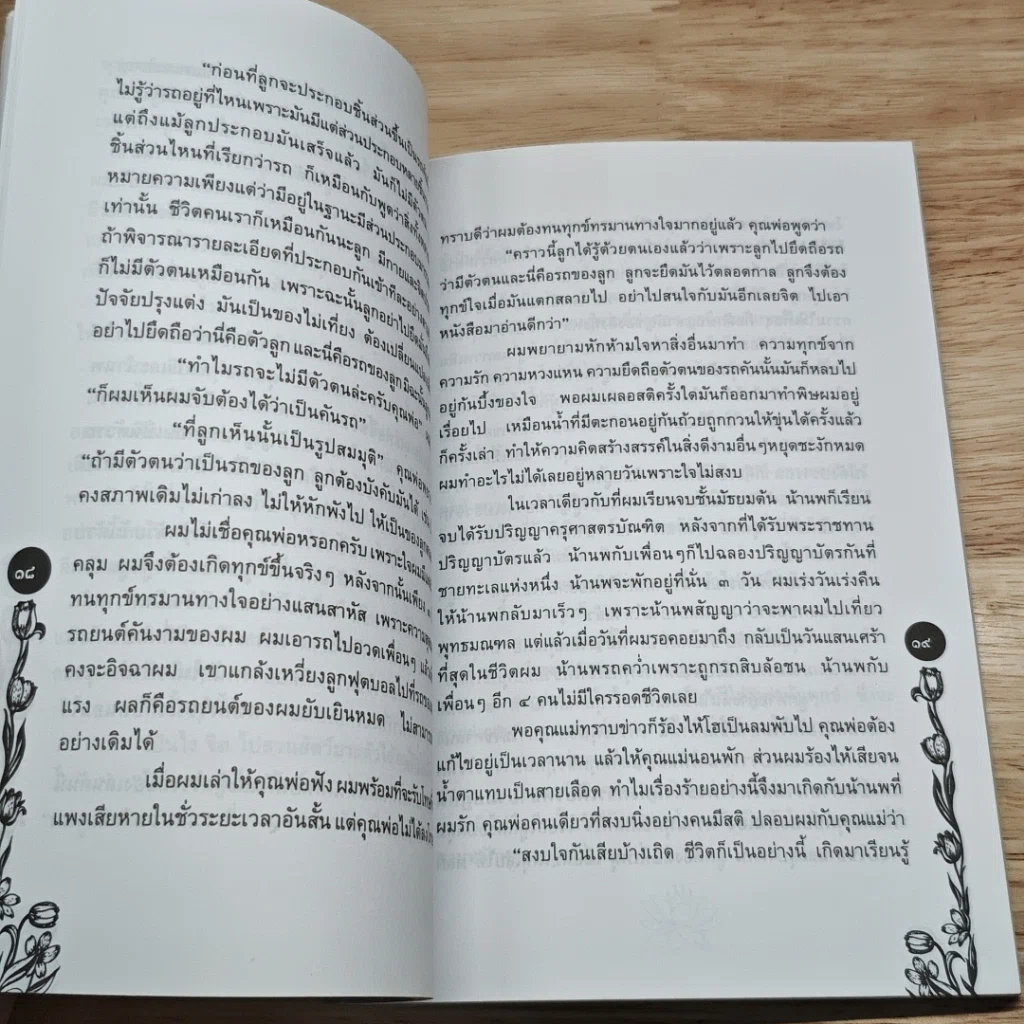 “ก่อนที่ลูกจะประกอบชิ้นส่วนขึ้นเป็น
ไม่รู้ว่ารถอยู่ที่ไหนเพราะมันมีแต่ส่วนประกอบ
แต่ถึงแม้ลูกประกอบมันเสร็จแล้ว มันก็ไม่มี
ชิ้นส่วนไหนที่เรียกว่ารถ ก็เหมือนกับพูดว่า
หมายความเพียงแต่ว่ามีอยู่ในฐานะมีส่วนประกอบ
เท่านั้น ชีวิตคนเราก็เหมือนกันนะลูก มีกายและ
ถ้าพิจารณารายละเอียดที่ประกอบกันเข้าทีละอย่าง
ก็ไม่มีตัวตนเหมือนกัน เพราะฉะนั้นลูกอย่าไปยึด
ปัจจัยปรุงแต่ง มันเป็นของไม่เที่ยง ต้องเปลี่ยน
อย่าไปยึดถือว่านี่คือตัวลูก และนี่คือรถของลูก
“ทำไมรถจะไม่มีตัวตนล่ะครับคุณพ่อ”
“ก็ผมเห็นผมจับต้องได้ว่าเป็นคันรถ”
“ที่ลูกเห็นนั้นเป็นรูปสมมุติ” คุณพ่อ
“ถ้ามีตัวตนว่าเป็นรถของลูก ลูกต้องบังคับมันได้
คงสภาพเดิมไม่เก่าลง ไม่ให้หักพังไป ให้เป็นของลูก
ผมไม่เชื่อคุณพ่อหรอกครับ เพราะใจผม
คลุม ผมจึงต้องเกิดทุกข์ขึ้นจริงๆ หลังจากนั้นเพียง
ทนทุกข์ทรมานทางใจอย่างแสนสาหัส เพราะความ
รถยนต์คันงามของผม ผมเอารถไปอวดเพื่อนๆ
คงจะอิจฉาผม เขาแกล้งเหวี่ยงลูกฟุตบอลไปที่รถ
แรง ผลก็คือรถยนต์ของผมยับเยินหมด ไม่สามารถ
อย่างเดิมได้
เมื่อผมเล่าให้คุณพ่อฟัง ผมพร้อมที่จะรับ
แพงเสียหายในชั่วระยะเวลาอันสั้น แต่คุณพ่อไม่ได้
๑๘
ทราบดีว่าผมต้องทนทุกข์ทรมานทางใจมากอยู่แล้ว คุณพ่อพูดว่า
“คราวนี้ลูกได้รู้ด้วยตนเองแล้วว่าเพราะลูกไปยึดถือรถ
ว่ามีตัวตนและนี่คือรถของลูก ลูกจะยึดมันไว้ตลอดกาล ลูกจึงต้อง
ทุกข์ใจเมื่อมันแตกสลายไป อย่าไปสนใจกับมันอีกเลยจิต ไปเอา
หนังสือมาอ่านดีกว่า”
ผมพยายามหักห้ามใจหาสิ่งอื่นมาทำ ความทุกข์จาก
ความรัก ความหวงแหน ความยึดถือตัวตนของรถคันนั้นมันก็หลบไป
อยู่กันบึ้งของใจ พอผมเผลอสติครั้งใดมันก็ออกมาทำพิษผมอยู่
เรื่อยไป เหมือนน้ำที่มีตะกอนอยู่กันถ้วยถูกกวนให้ขุ่นได้ครั้งแล้ว
ก็ครั้งเล่า ทำให้ความคิดสร้างสรรค์ในสิ่งดีงามอื่นๆหยุดชะงักหมด
ผมทำอะไรไม่ได้เลยอยู่หลายวันเพราะใจไม่สงบ
ในเวลาเดียวกับที่ผมเรียนจบชั้นมัธยมต้น น้านพก็เรียน
จบได้รับปริญญาครุศาสตรบัณฑิต หลังจากที่ได้รับพระราชทาน
ปริญญาบัตรแล้ว น้านพกับเพื่อนๆก็ไปฉลองปริญญาบัตรกันที่
ชายทะเลแห่งหนึ่ง น้านพจะพักอยู่ที่นั่น ๓ วัน ผมเร่งวันเร่งคืน
ให้น้านพกลับมาเร็วๆ เพราะน้านพสัญญาว่าจะพาผมไปเที่ยว
พุทธมณฑล แต่แล้วเมื่อวันที่ผมรอคอยมาถึง กลับเป็นวันแสนเศร้า
ที่สุดในชีวิตผม น้านพรถคว่ำเพราะถูกรถสิบล้อชน น้านพกับ
เพื่อนๆ อีก ๔ คนไม่มีใครรอดชีวิตเลย
พอคุณแม่ทราบข่าวก็ร้องไห้โฮเป็นลมพับไป คุณพ่อต้อง
แก้ไขอยู่เป็นเวลานาน แล้วให้คุณแม่นอนพัก ส่วนผมร้องไห้เสียจน
น้ำตาแทบเป็นสายเลือด ทำไมเรื่องร้ายอย่างนี้จึงมาเกิดกับน้านพที่
ผมรัก คุณพ่อคนเดียวที่สงบนิ่งอย่างคนมีสติ ปลอบผมกับคุณแม่ว่า
“สงบใจกันเสียบ้างเถิด ชีวิตก็เป็นอย่างนี้ เกิดมาเรียนรู้
๑๙